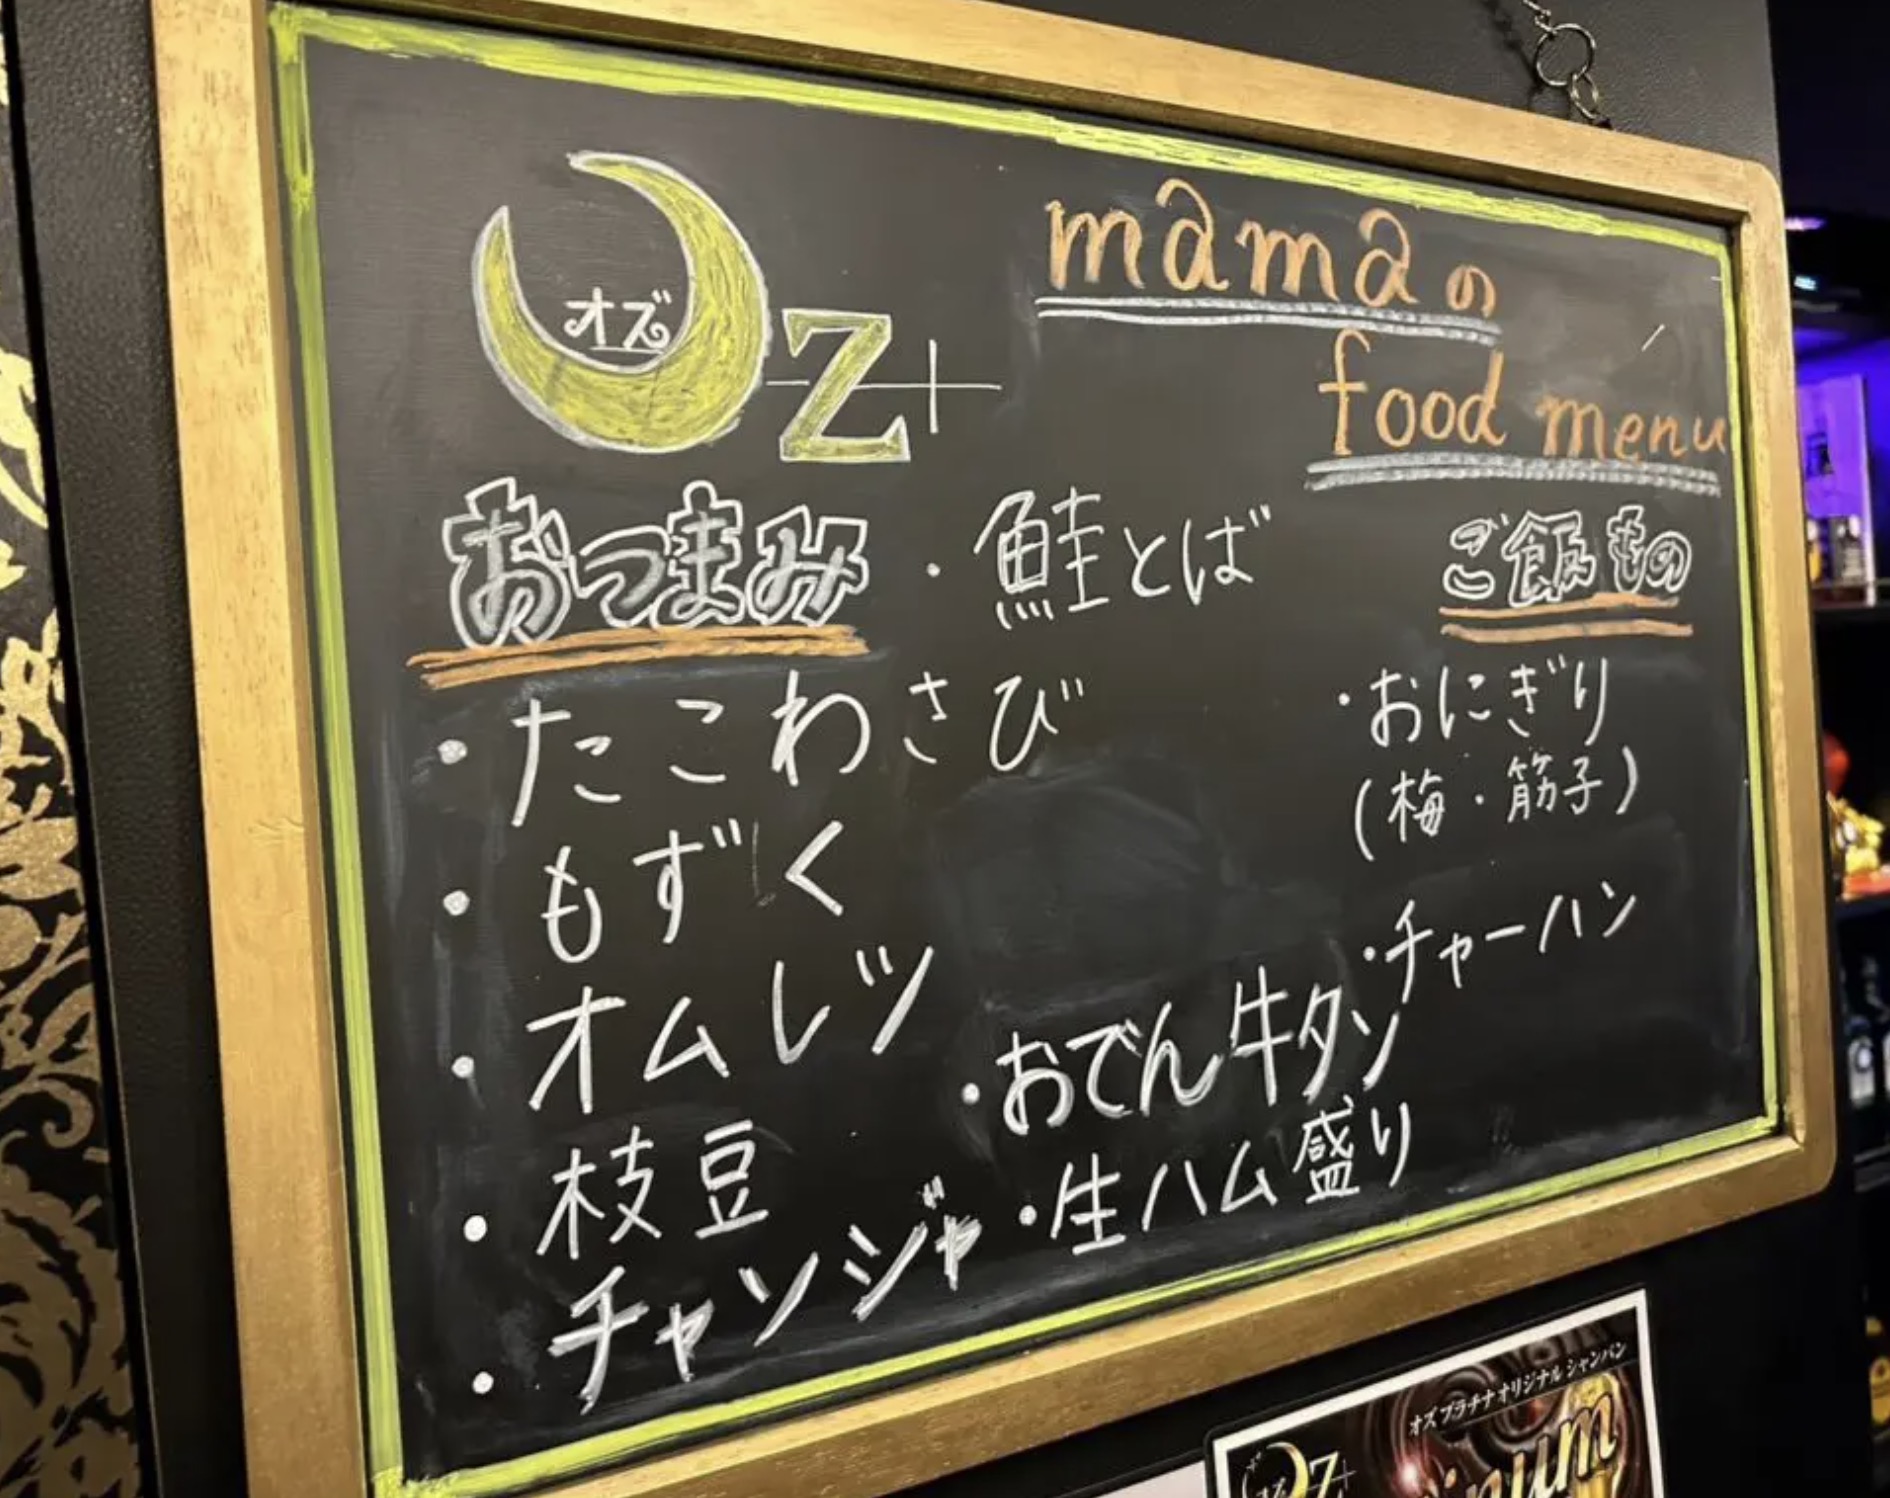 オズ
Z+
mamaの
food menu
おつまみ
・鮭とば
・たこわさび
・もずく
・オムレツ
・枝豆
・チャンジャ
・おでん牛タン
・生ハム盛り
ご飯もの
・おにぎり
(梅・筋子)
・チャーハン
オズプラチナオリジナルシャンパン
オズ
Z+